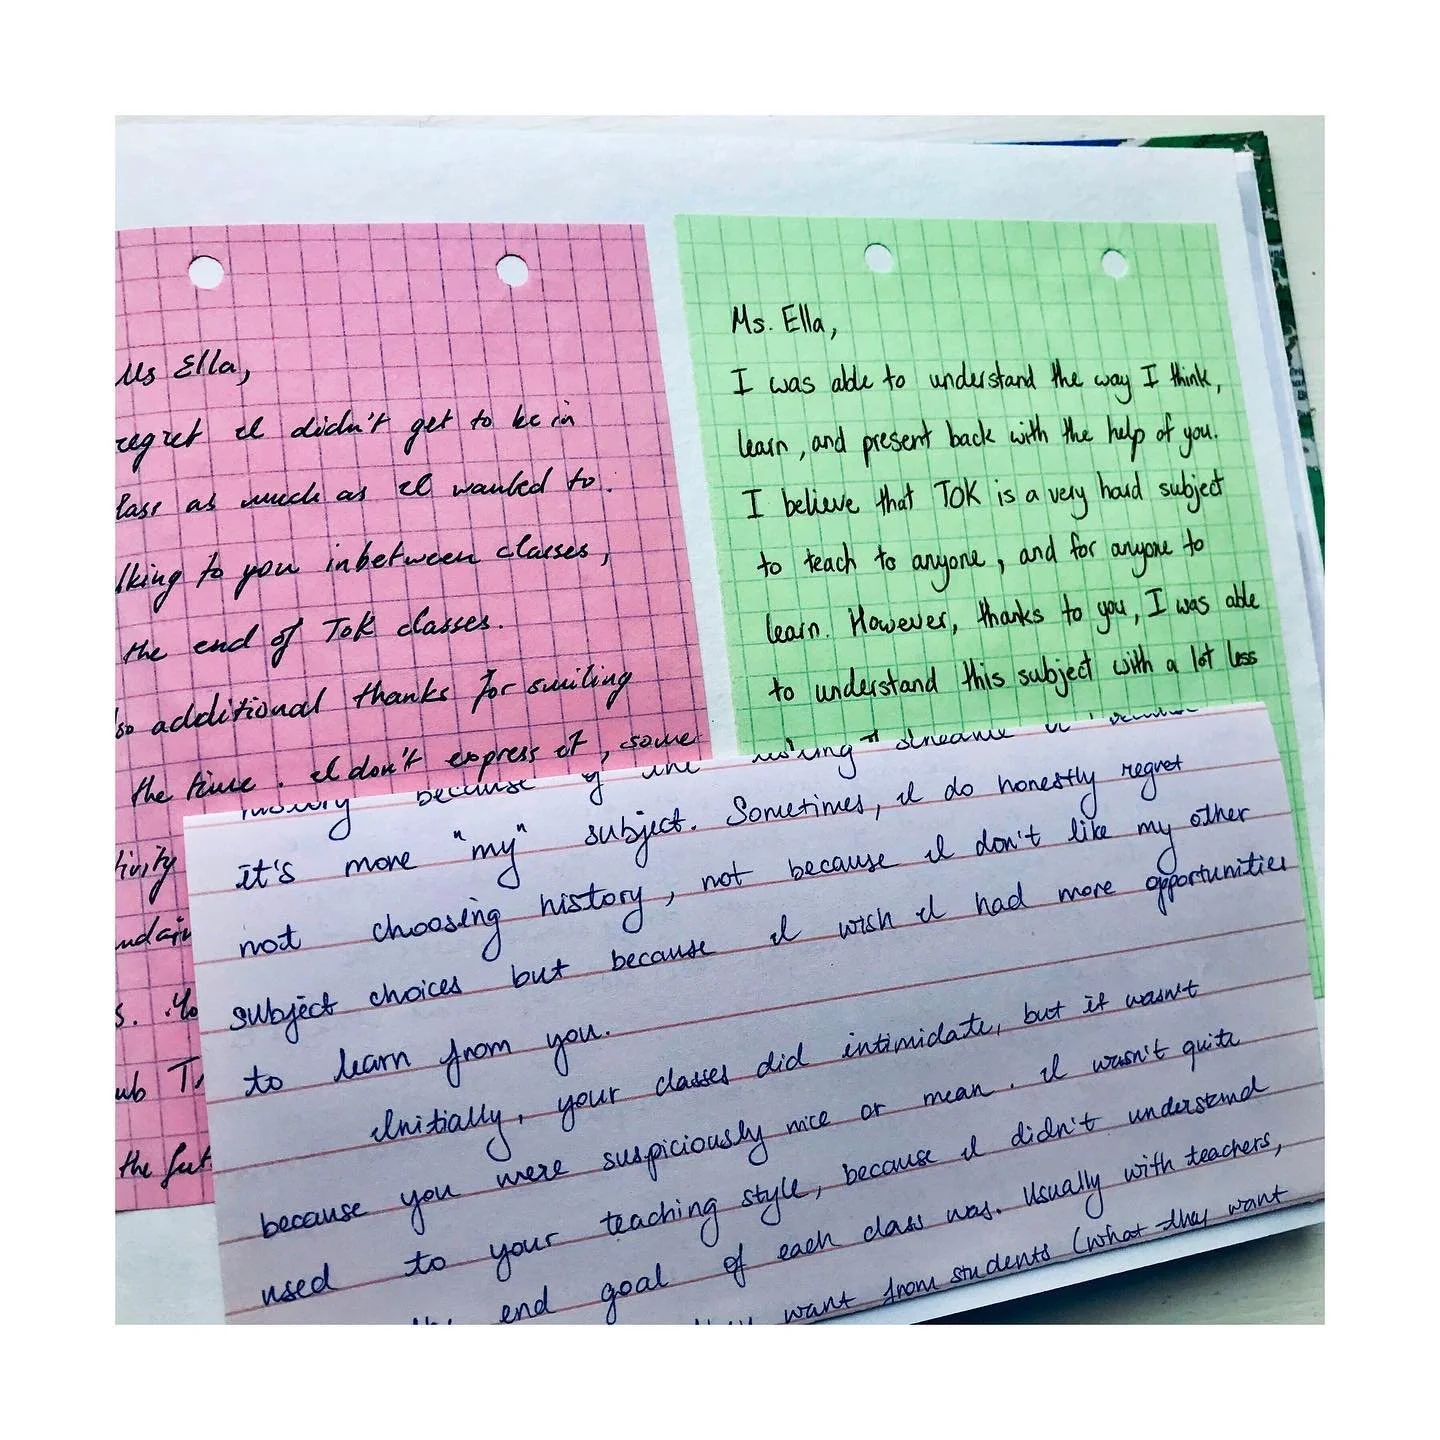 Ms Ella,
regret I didn't get to be in
as much as I wanted to.
to you inbetween classes,
the end of TOK classes.
additional thanks for smiling
the time. I don't express it, some
the
Ms. Ella,
I was able to understand the way I think,
learn, and present back with the help of you.
I believe that TOK is a very hard subject
to teach to anyone, and for anyone to
learn. However, thanks to you, I was able
to understand this subject with a lot less
because of the
it's more "my" subject. Sometimes, I do honestly regret
not choosing history, not because I don't like my other
subject choices but because I wish I had more opportunities
to learn from you.
Initially, your classes did intimidate, but it wasn't
because you were suspiciously nice or mean. I wasn't quite
used to your teaching style, because I didn't understand
end goal of each class was. Usually with teachers,
want from students (what they want